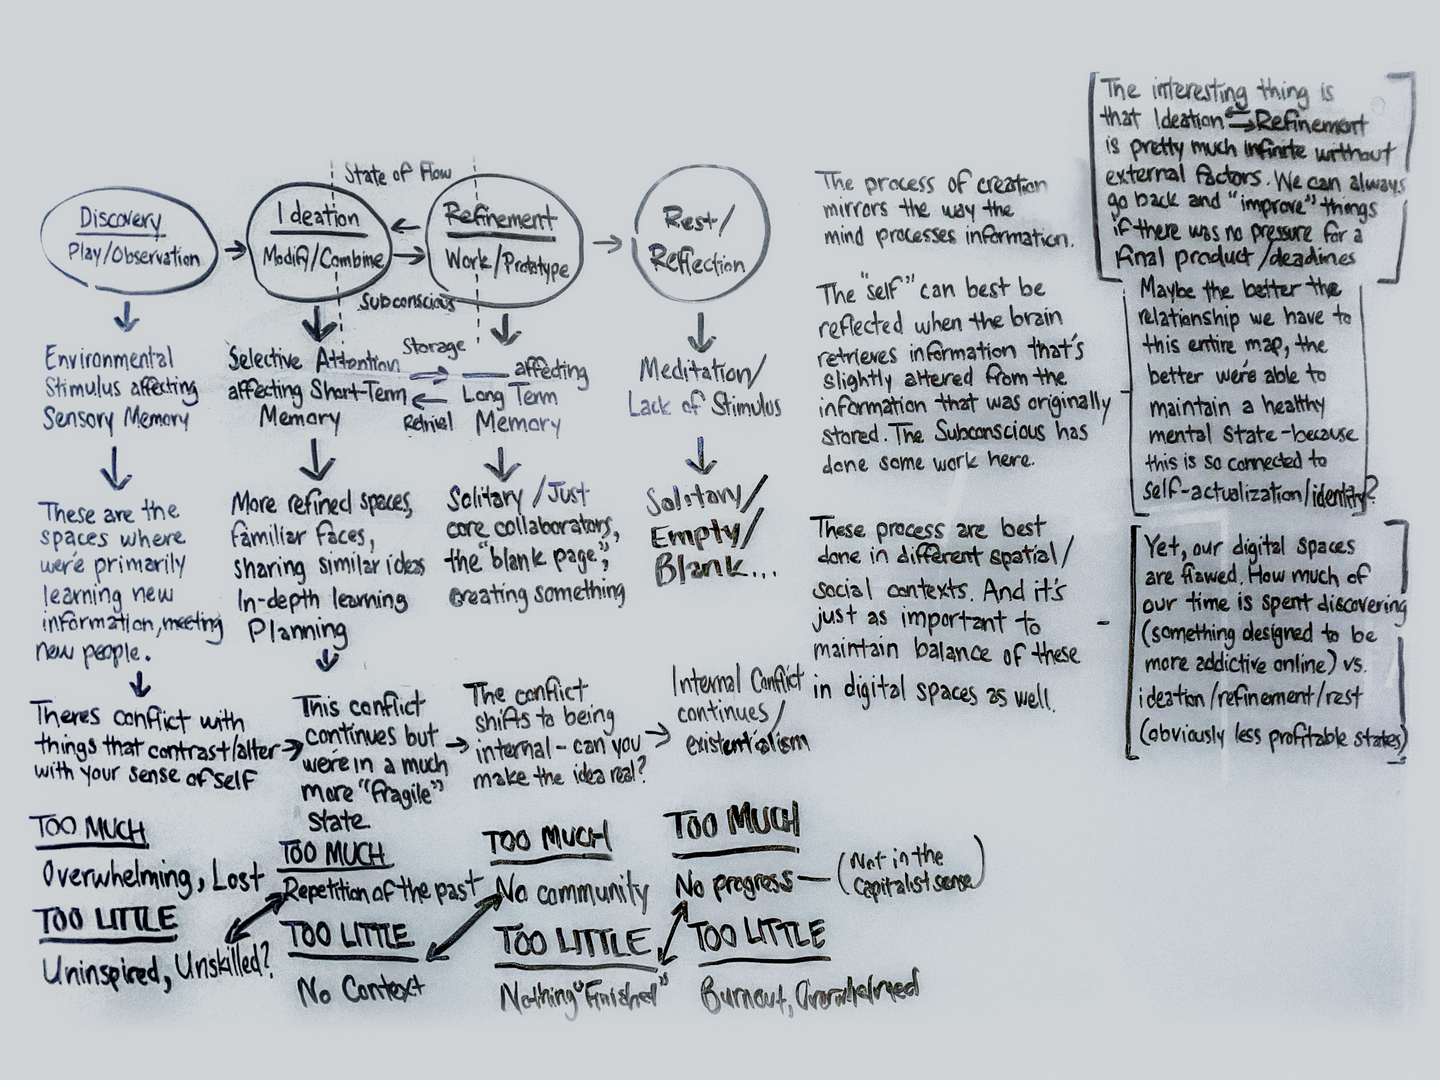 State of Flow
Discovery
Play/Observation
Ideation
Modify/Combine
Refinement
Work/Prototype
Rest/
Reflection
Subconscious
Environmental
Stimulus affecting
Sensory Memory
Selective Attention
affecting Short-Term
Memory
Storage
Retrival
affecting
Long Term
Memory
Meditation/
Lack of Stimulus
These are the
spaces where
we're primarily
learning new
information, meeting
new people.
More refined spaces,
familiar faces,
sharing similar ideas
In-depth learning
Planning
Solitary/Just
core collaborators,
the "blank page",
creating something
Solitary/
Empty/
Blank...
Theres conflict with
things that contrast/alter
with your sense of self
This conflict
continues but
we're in a much
more "fragile"
state.
The conflict
shifts to being
internal - can you
make the idea real?
Internal Conflict
continues/
existentialism
TOO MUCH
Overwhelming, Lost
TOO LITTLE
Uninspired, Unskilled?
TOO MUCH
Repetition of the past
TOO LITTLE
No Context
TOO MUCH
No community
TOO LITTLE
Nothing "Finished"
TOO MUCH
No progress
(Not in the
Capitalist sense)
TOO LITTLE
Burnout, Overwhelmed
The process of creation
mirrors the way the
mind processes information.
The "self" can best be
reflected when the brain
retrieves information that's
slightly altered from the
information that was originally
stored. The Subconscious has
done some work here.
These process are best
done in different spatial/
social contexts. And it's
just as important to
maintain balance of these
in digital spaces as well.
The interesting thing is
that Ideation ⇆ Refinement
is pretty much infinite without
external factors. We can always
go back and "improve" things
if there was no pressure for a
final product/deadlines
Maybe the better the
relationship we have to
this entire map, the
better we're able to
maintain a healthy
mental state - because
this is so connected to
self-actualization/identity?
Yet, our digital spaces
are flawed. How much of
our time is spent discovering
(something designed to be
more addictive online) vs.
ideation/refinement/rest
(obviously less profitable states)